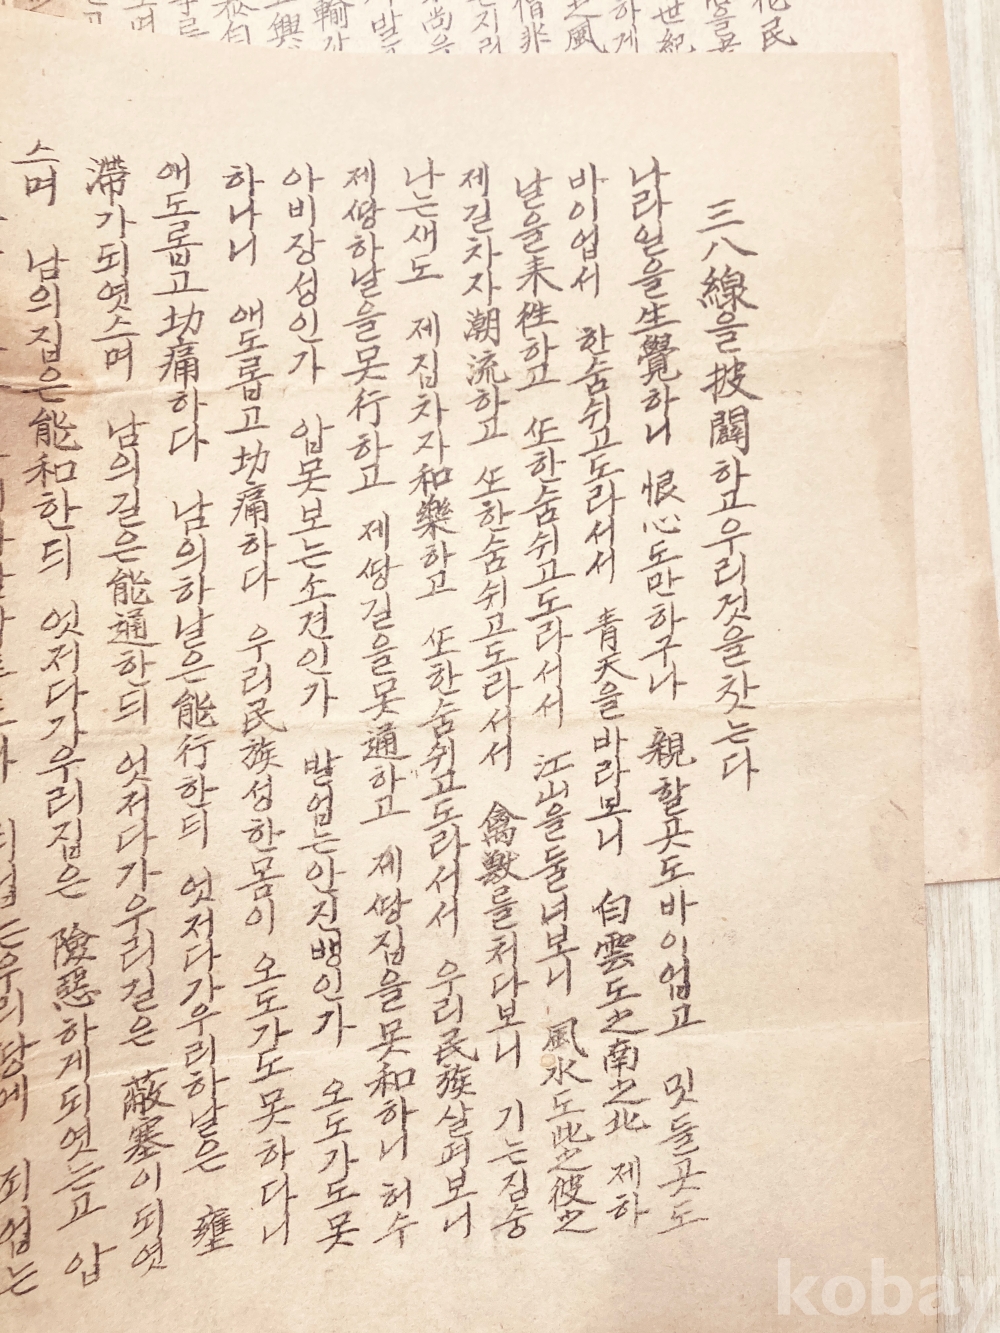 三八線을披闢하고우리것을찻는다
나라일을生覺하니 恨心도만하구나 親할곳도바이업고 밋들곳도
바이업서 한숨쉬고도라서서 靑天을바라보니 白雲도之南之北 제하
날을來徃하고 또한숨쉬고도라서서 江山을둘너보니 風水도此之彼之
제길차자潮流하고 또한숨쉬고도라서서 禽獸를처다보니 기는짐승
나는새도 제집차자和樂하고 또한숨쉬고도라서서 우리民族살펴보니
제땅하날을못行하고 제땅길을못通하고 제땅집을못和하니 허수
아비장성인가 압못보는소견인가 발업는안진뱅인가 오도가도못
하나니 애도롭고切痛하다 우리民族성한몸이 오도가도못하다니
애도롭고切痛하다 남의하날은能行한듸 엇저다가우리하날은 壅
滯가되엿스며 남의길은能通한듸 엇저다가우리길은 蔽塞이되엿
스며 남의집은能和한듸 엇저다가우리집은 險惡하게되엿는고 압
kobay